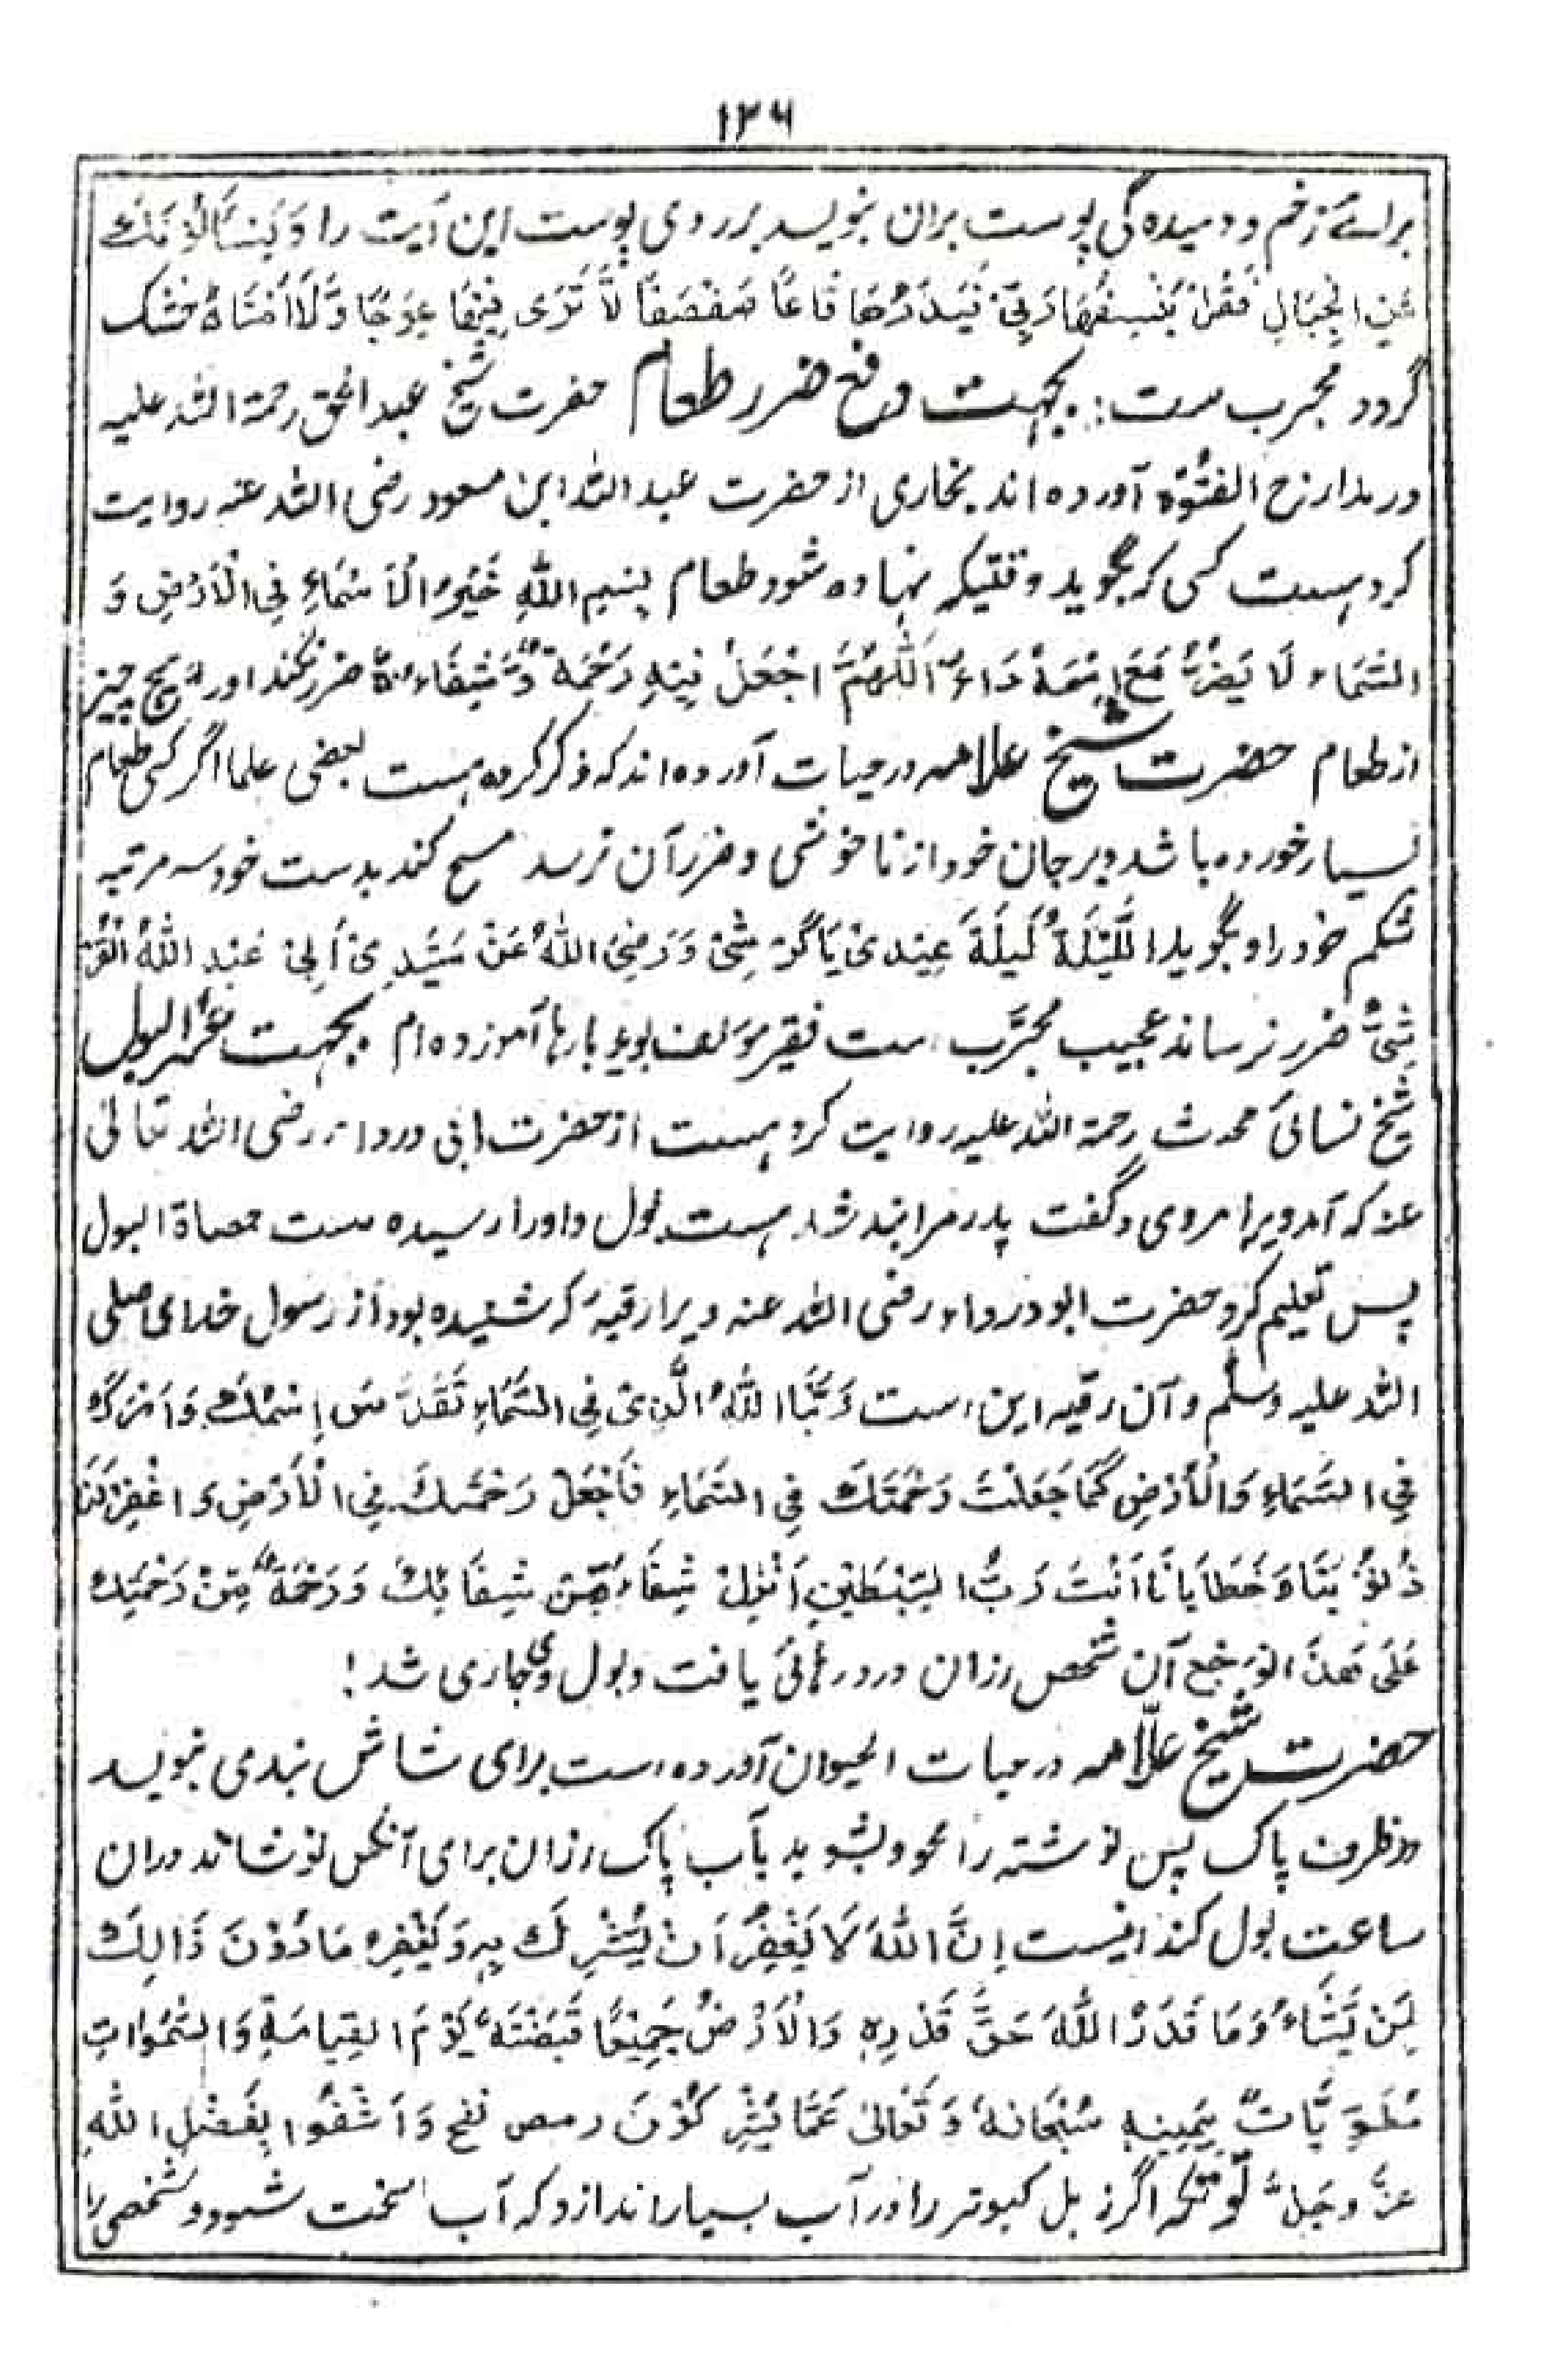 ۱۲۶
برائے زخم و دمیده گی پوست بران بنویسد بر روی پوست این آیت را وَیَسْاَلُوْنَكَ
عَنِ الْجِبَالِ فَقُلْ یَنْسِفُهَا رَبِّیْ فَیَذَرُهَا قَاعًا صَفْصَفًا لَّا تَرٰی فِیْهَا عِوَجًا وَّلَا اَمْتَاهُ خشک
گردد مجرب ست : بجهت دفع ضرر طعام حضرت شیخ عبد الحق رحمة الله علیه
در مدارج النبوة آورده اند بخاری از حضرت عبد الله ابن مسعود رضی الله عنه روایت
کرد هست کسی که بگوید وقتیکه نهاده شود طعام بِسْمِ اللهِ خَیْرُ الْاَسْمَاءِ فِی الْاَرْضِ وَ
السَّمَاءِ لَا یَضُرُّ مَعَ اِسْمَهٗ دَاءٌ اَللّٰهُمَّ اجْعَلْ فِیْهِ رَحْمَةً وَّ شِفَاءً ضرر نکند اورا هیچ چیز
از طعام حضرت شیخ علامه در حیات آورده اند که ذکر کرده هست بعضی علما اگر کسی طعام
بسیار خورده باشد و بر جان خود از ناخوشی و ضرر آن ترسد مسح کند بدست خود سه مرتبه
شکم خود را و بگوید اللَّیْلَةُ لَیلَةَ عِیْدِیْ یَا كَرْشِیْ وَ رَضِیَ اللهُ عَنْ سَیِّدِیْ اَبِیْ عَبْدِ اللهِ الْقُرَ
شِیِّ ضرر نرساند عجیب مجرَّب است فقیر مؤلف بویو بارها آموزده ام ۰ بجهت عسر البول
شیخ نسائی محدث رحمة الله علیه روایت کرد هست از حضرت ابی درداء رضی الله تعالی
عنه که آمد ویرا مردی و گفت پدر مرا بند شد هست بول و اورا رسیده ست حصاة البول
پس تعلیم کرد حضرت ابو درداء رضی الله عنه ویرا رقیه که شنیده بود از رسول خدای صلی
الله علیه وسلم و آن رقیه این است رَبُّنَا اللهُ الَّذِیْ فِی السَّمَاءِ تَقَدَّسَ اِسْمُكَ وَ اَمْرُكَ
فِی السَّمَاءِ وَالْاَرْضِ كَمَا جَعَلْتَ رَحْمَتَكَ فِی السَّمَاءِ فَاجْعَلْ رَحْمَتكَ فِی الْاَرْضِ وَ اغْفِرْ لَنَا
ذُنُوْبَنَا وَ خَطَایَانَا اَنْتَ رَبُّ الیَّبْطِیْنِ اَنْزِلْ شِفَاءً مِّنْ شِفَائِكَ وَ رَحْمَةً مِّنْ رَحْمَتِكَ
عَلٰی هٰذَ الوَجَعِ آن شخص رزان درد رهائی یافت و بول وی جاری شد !
حضرت شیخ علّامه در حیات الحیوان آورده است برای شاش بندی بنویسد
در ظرف پاک پس نوشته را محو و بشوید بآب پاک رزان برای آنکس نوشاند دران
ساعت بول کند اینست اِنَّ اللهَ لَا یَغْفِرُ اَنْ یُّشْرِكَ بِهٖ وَ یَغْفِرُ مَا دُوْنَ ذَالِكَ
لِمَنْ یَّشَاءُ وَ مَا قَدَرُ اللهَ حَقَّ قَدْرِهٖ وَالْاَرْضُ جَمِیْعًا قَبْضَتَهٗ یَوْمَ القِیَامَةِ وَ السَّمٰوَاتِ
مَطْوِیَّاتٌ بِیَمِیْنِهٖ سُبْحَانَهٗ وَ تَعَالٰی عَمَّا یُشْرِكُوْنَ رمص نفح وَ اَشْفُوا بِفَضْلِ اللهِ
عَزَّ وَجَلَّ لَوْ تنکه اگر زبل کبوتر را در آب بسیار اندازد که آب سخت شود و شخصی را